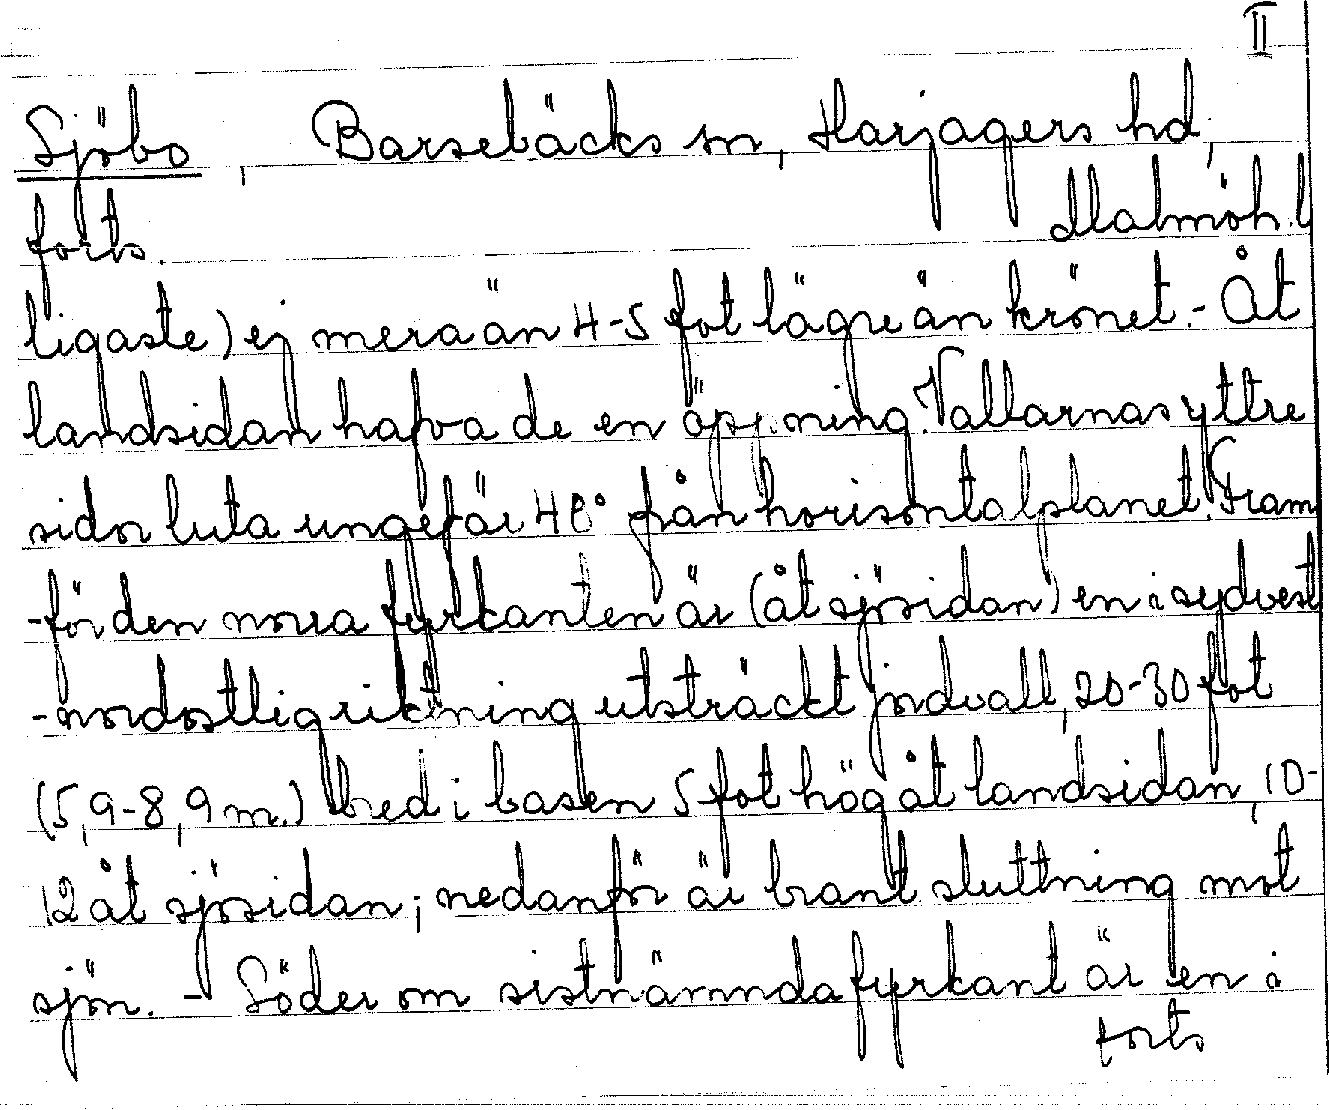 II
Sjöbo, Barsebäcks sn, Harjagers hd,
forts. Malmöh. l
ligaste) ej mera än 4-5 fot lägre än krönet. - Åt
landsidan hafva de en öppning. Vallarnas yttre
sidor luta ungefär 48° från horisontalplanet. Fram
-för den norra fyrkanten är (åt sjösidan) en i sydvest
-nordostlig riktning utsträckt jordvall, 20-30 fot
(5,9-8,9 m.) bred i basen 5 fot hög åt landsidan, 10-
12 åt sjösidan; nedanför är brant sluttning mot
sjön. - Söder om sistnämnda fyrkant är en i
forts